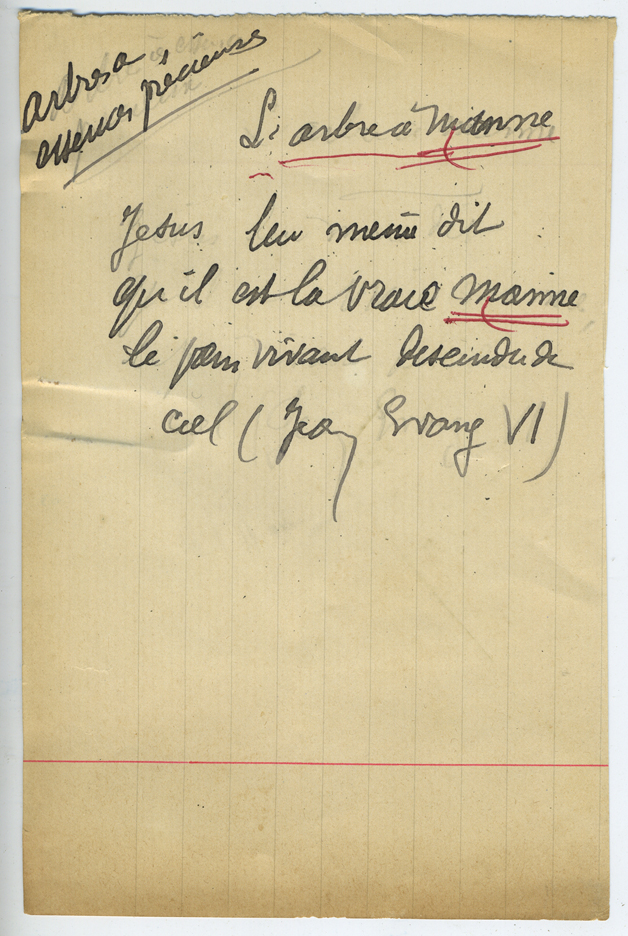 arbres a
essences précieuses
L'arbre à Manne
Jesus lui meme dit
qu'il est la vraie Manne
le pain vivant descendu du
ciel ( Jean Evang VI )